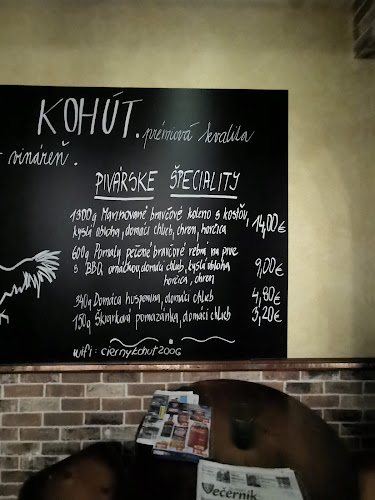 KOHÚT.
prémiová kvalita
vináreň.
PIVÁRSKE ŠPECIALITY
1300g Marinované bravčové koleno s kosťou,
kyslá obloha, domáci chlieb, chren, horčica 14,00€
600g Pomaly pečené bravčové rebrá na pive
s BBQ omáčkou, domáci chlieb, kyslá obloha
horčica, chren 9,00€
340g Domáca huspenina, domáci chlieb 4,80€
150g Škvarková pomazánka, domáci chlieb 3,20€
wifi: ciernykohut2006
večerník